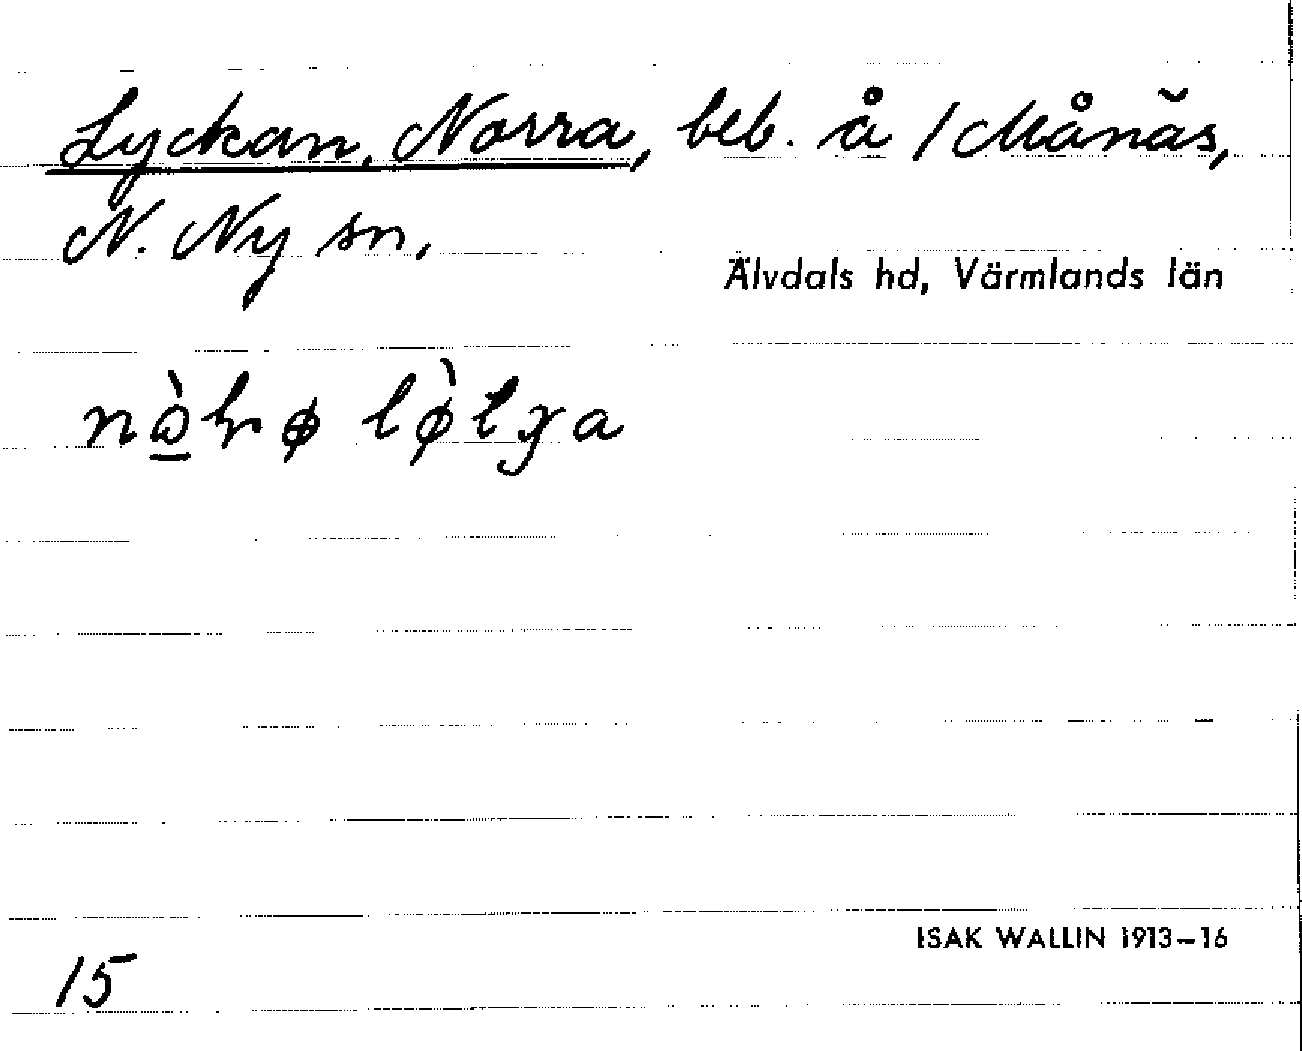 Lyckan, Norra, beb. å 1 Månäs,
N. Ny sn.
Älvdals hd, Värmlands län
ISAK WALLIN 1913–16
15